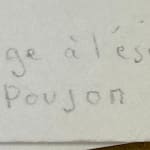 ge à l'és
Poujon